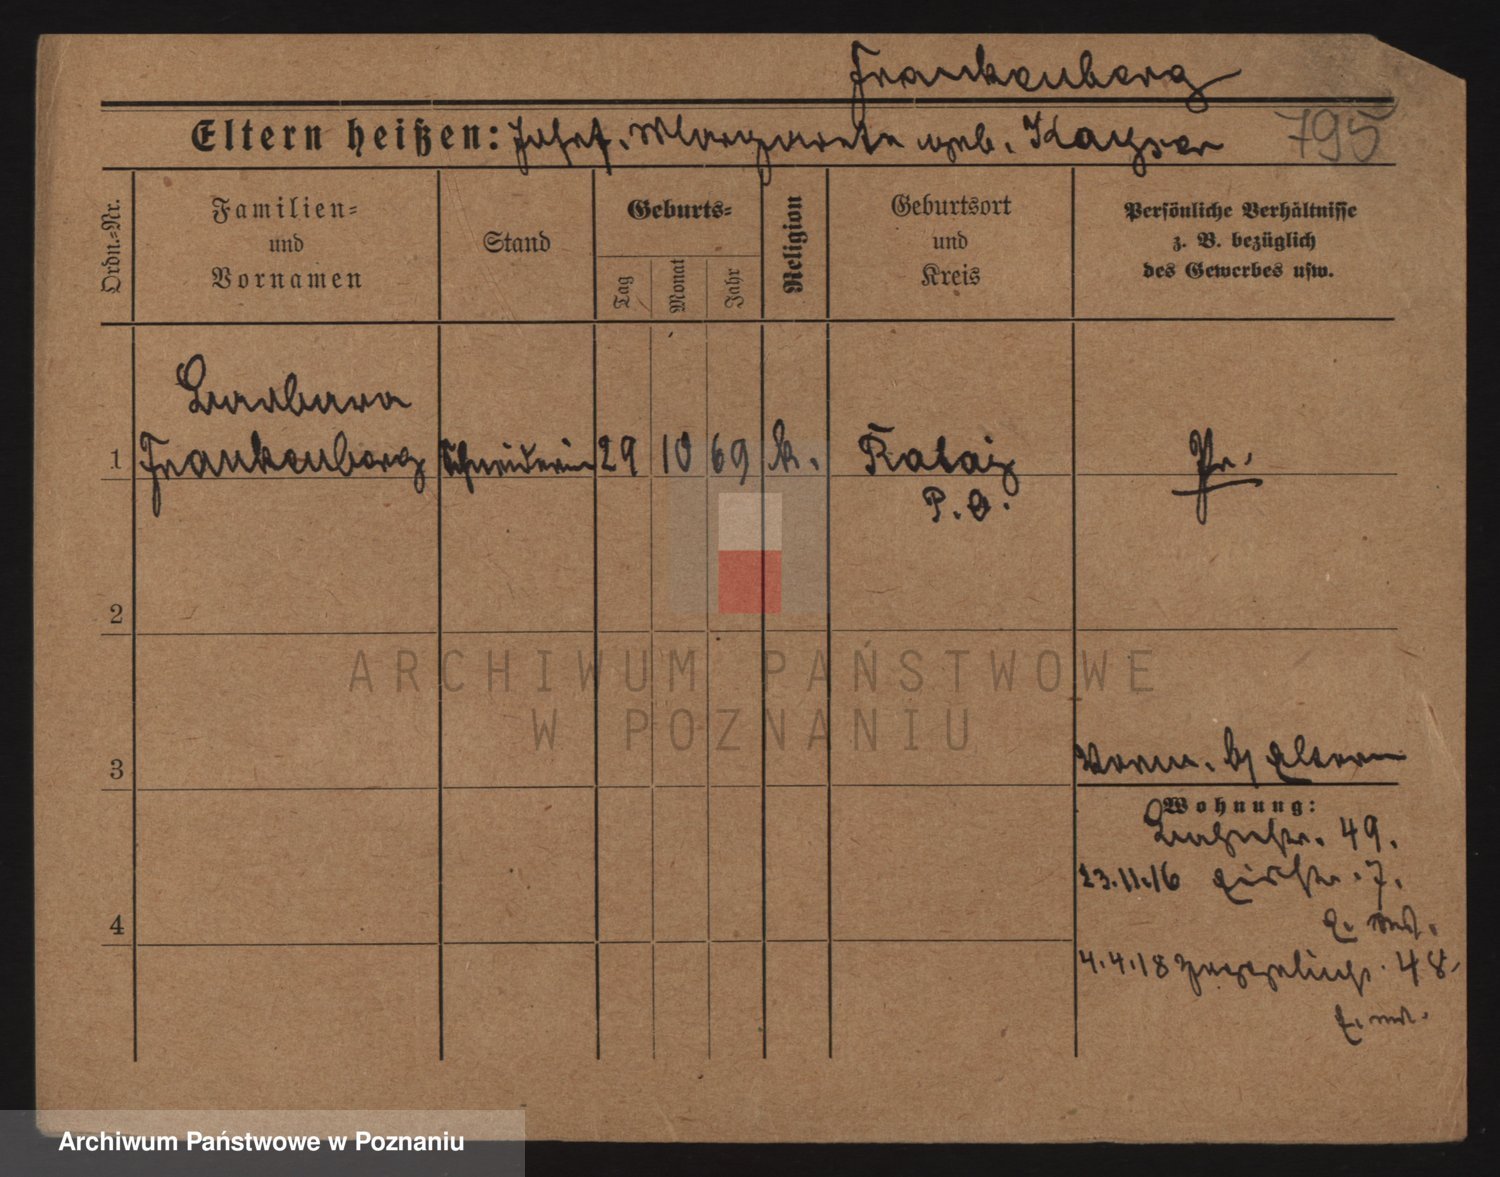 Frankenberg
Eltern heißen: Josef, Margarete geb. Kayser
795
Ordn.=Nr.
Familien=
und
Vornamen
Stand
Geburts=
Tag
Monat
Jahr
Religion
Geburtsort
und
Kreis
Persönliche Verhältnisse
z. B. bezüglich
des Gewerbes usw.
Barbara
1 Frankenberg Schneiderin 29 10 69 k. Rataj Pr.
P. O.
2
ARCHIWUM PAŃSTWOWE
W POZNANIU
3
b/ Eltern
Wohnung:
49.
23.11.16 7.
4
4.4.18 48
Archiwum Państwowe w Poznaniu